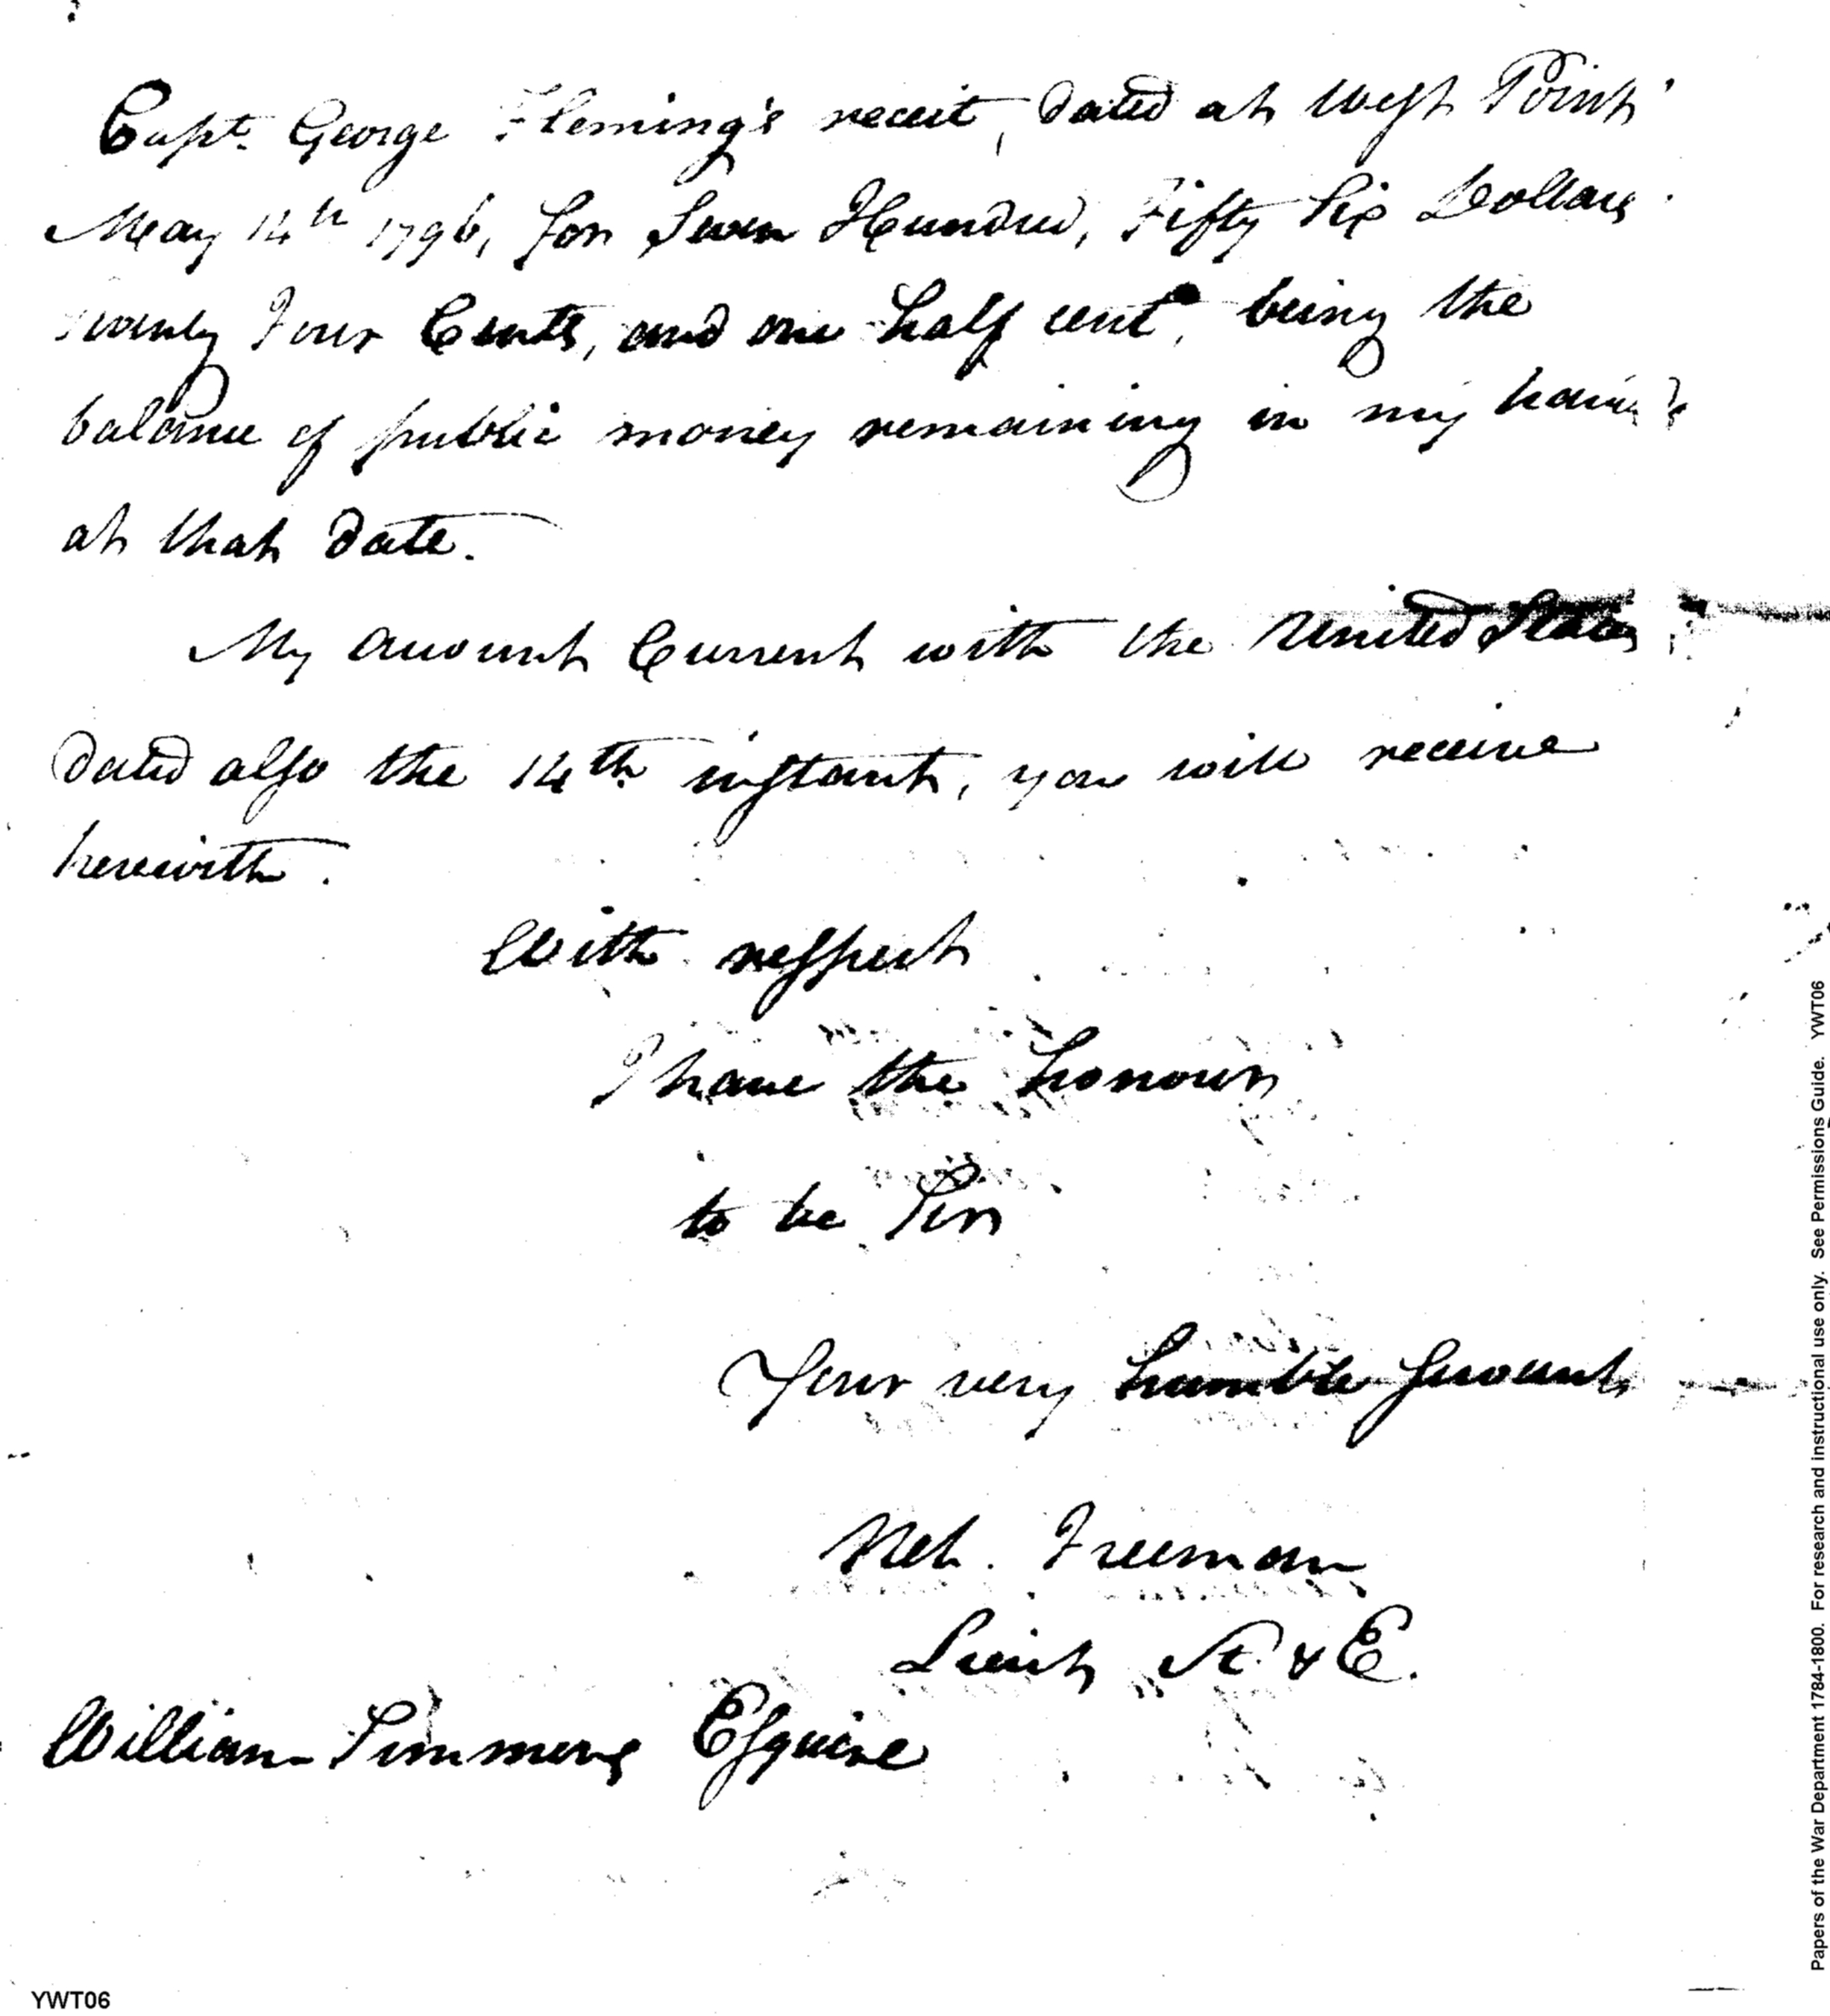 Capt. George Fleming's receit, dated at West Point
May 14th 1796, for Seven Hundred, Fifty Six Dollars
Four Cents, and one half cent, being the
balance of public money remaining in my hands
at that date.
My account Current with the United States
dated also the 14th instant, you will receive
herewith.
With respect
I have the honour
to be Sir
Your very humble Servant
Neh. Freeman
Lieut A. & E.
William Simmons Esquire
YWT06
Papers of the War Department 1784-1800. For research and instructional use only. See Permissions Guide. YWT06